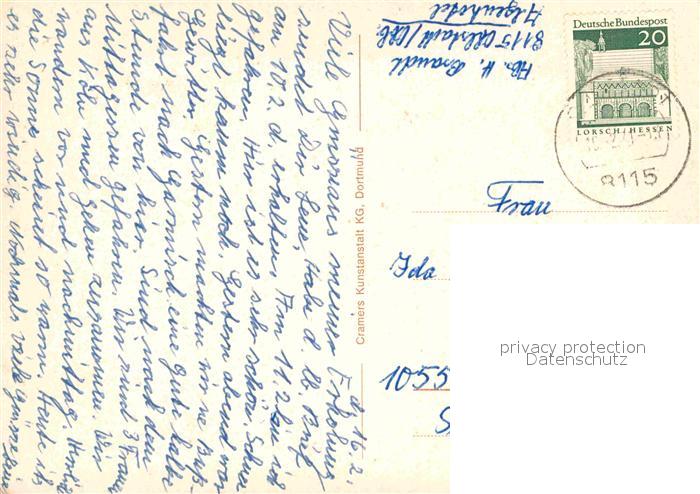 d. 16.2.
Viele Grüsse aus meiner Erholung
sendet Dir Lene. Habe d. lb. Brief
am 10.2. d. erhalten. Am 11.2. bin ich
gefahren. Hier ist es sehr schön. Schnee
liegt kaum noch. Gestern abend war
Gewitter. Gestern machten wir ne Bus-
fahrt nach Garmisch eine gute halbe
Stunde von hier. Sind nach dem
Mittagessen gefahren. Wir sind 3 Frauen
aus Köln und gehen zusammen. Wir
wandern vor und nachmittag.
die Sonne scheint so warm. Heute ist
es sehr windig. Nochmals viele Grüsse
Cramers Kunstanstalt KG, Dortmund
Abs. H. Brandl
8115 Ohlstadt/Obb.
Alpenhotel
Deutsche Bundespost
20
LORSCH/HESSEN
8115
Frau
Ida
1055
privacy protection
Datenschutz